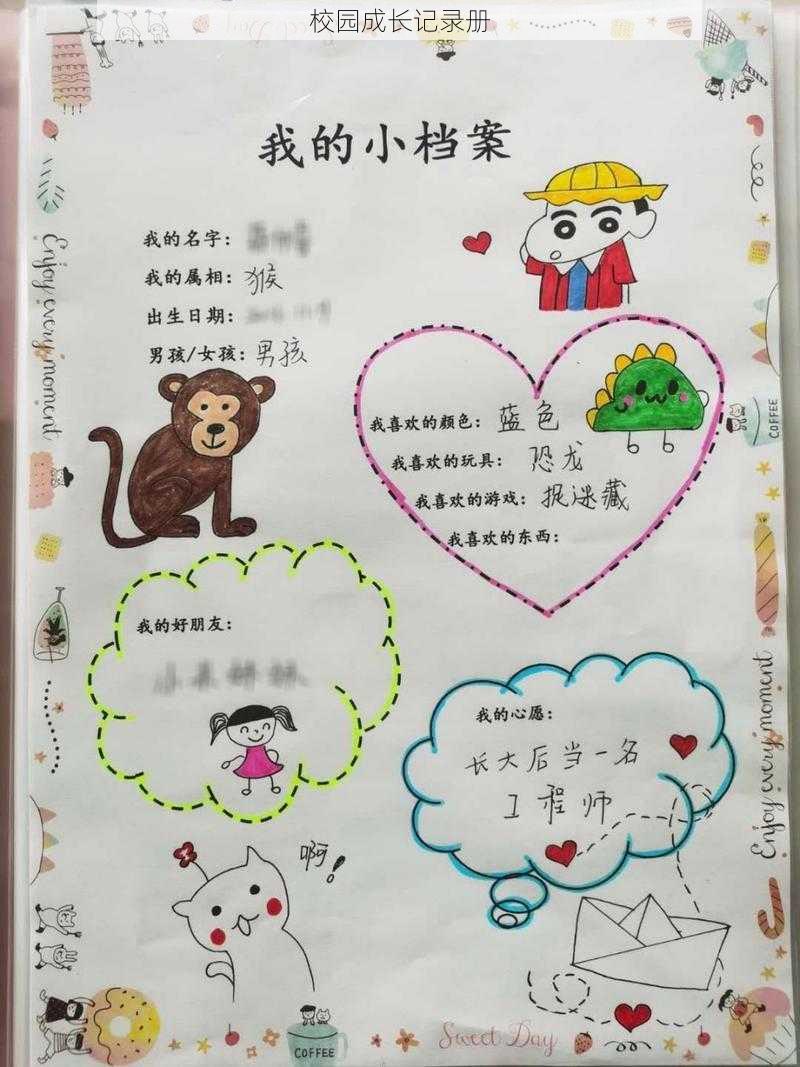 校园成长记录册
我的小档案
我的名字：
我的属相：猴
出生日期：
男孩/女孩：男孩
我喜欢的颜色：蓝色
我喜欢的玩具：恐龙
我喜欢的游戏：捉迷藏
我喜欢的东西：
我的好朋友：
我的心愿：
长大后当一名
工程师
啊！
Enjoy every moment
COFFEE
Enjoy every moment
COFFEE
Sweet Day